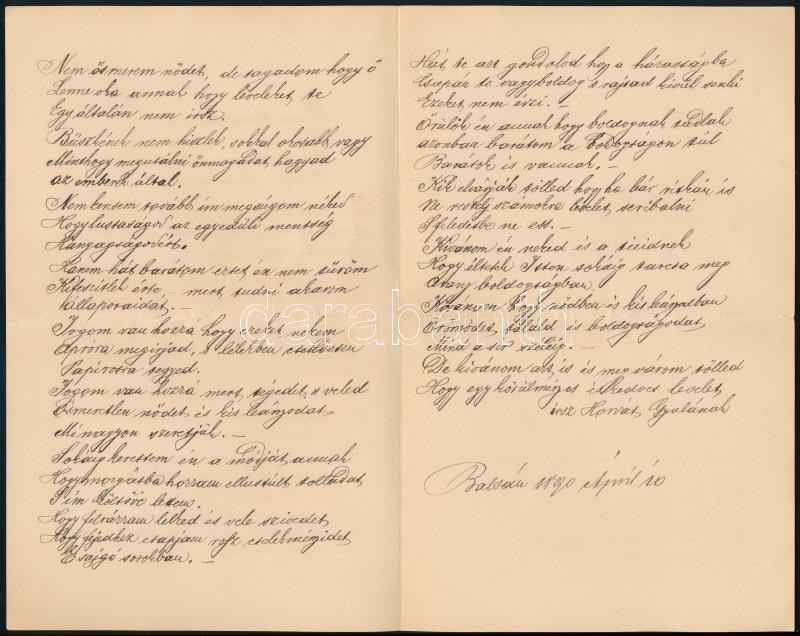 Nem ösmerem nődet, de tagadom hogy ő
Lenne oka annak hogy leveleket te
Egyáltalán nem irsz.
Büszkének nem hiszlek, sokkal okosabb vagy
Minthogy megutálni önmagadat hagyad
az emberek által.
Nem keresem tovább im megsúgom néked
Hogy lustaságod az egyedüli mentség
Hanyagságodért.
Hanem hát barátom ezt én nem türöm
Kifeszitlek érte – mert tudni akarom
hállapotaidat. –
Jogom van hozzá hogy ezeket nekem
Apróra megirjad, s levélben
Papirosra tegyed.
Jogom van hozzá mert tégedet s veled
Esmeretlen nődet és kis leányodat
Mi nagyon szeretjük. –
Sokáig kerestem én a módját annak
Hogy mozgásba hozzam ellustúlt tolladat
S im költővé lettem.
Hogy felrázzam lelked és vele szivedet
Hogy fejedhez csapjam rosz
E sajgó sorokban. –
Hát te azt gondolod hogy a házasságba
Csupán te vagy boldog s rajtad kivül senki
Ezeket nem érzi. –
Örülök én annak hogy boldognak tudlak
azonban barátom a boldogságon túl
Barátok is vannak. –
Kik elvárják tőlled hogy ha bár ritkán is
De számokra levelet scribálni
Sfeledetbe ne ess. –
Kivánom én neked és a tieidnek
Hogy éltetek Isten sokáig tartsa meg
Arany boldogságban.
Kivánom hogy nődben és kis leányodban
Örömödet, találd és boldogságodat
Mind a sir széléig. –
De kivánom azt is és meg várom tőlled
Hogy egy körülményes levelet
irsz Horvát Gyulának
Balsán 1890 Ápril 10
darabanth